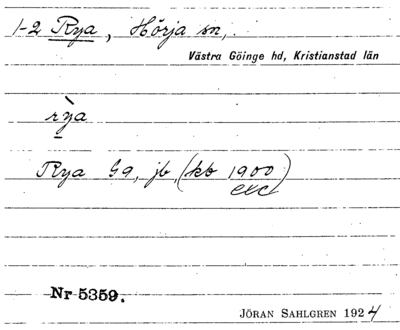 1-2 Rya, Hörja sn,
Västra Göinge hd, Kristianstad län
rỳa
Rya G9, jb, (kb 1900)
exc
Nr 5359.
JÖRAN SAHLGREN 1924